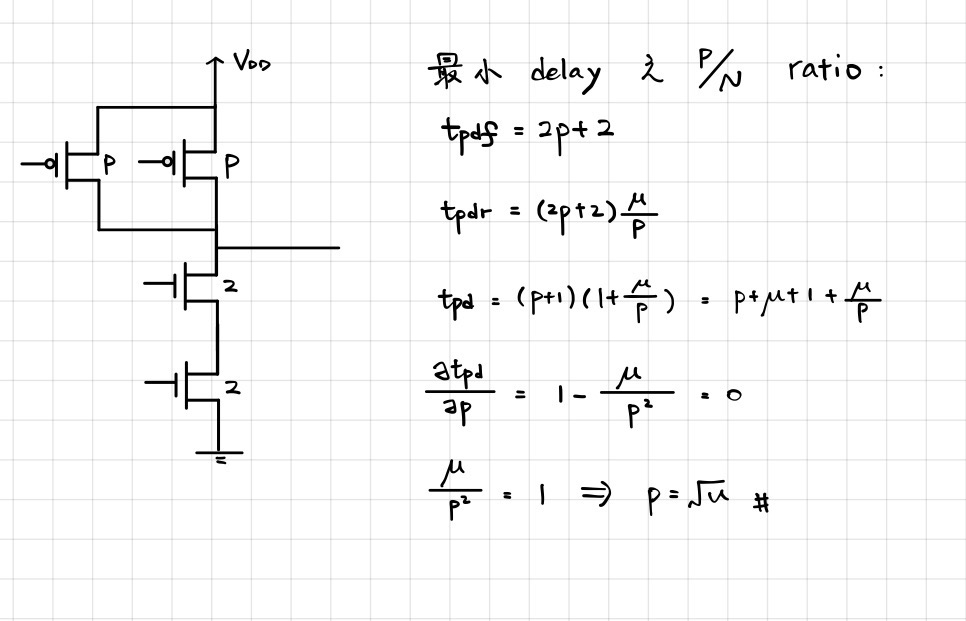 V_DD
P
P
2
2
最小 delay 之 P/N ratio :
t_pdf = 2p+2
t_pdr = (2p+2) μ/P
t_pd = (p+1)(1+μ/P) = p+μ+1+μ/P
∂t_pd/∂p = 1 - μ/P² = 0
μ/P² = 1 ⇒ p = √u #